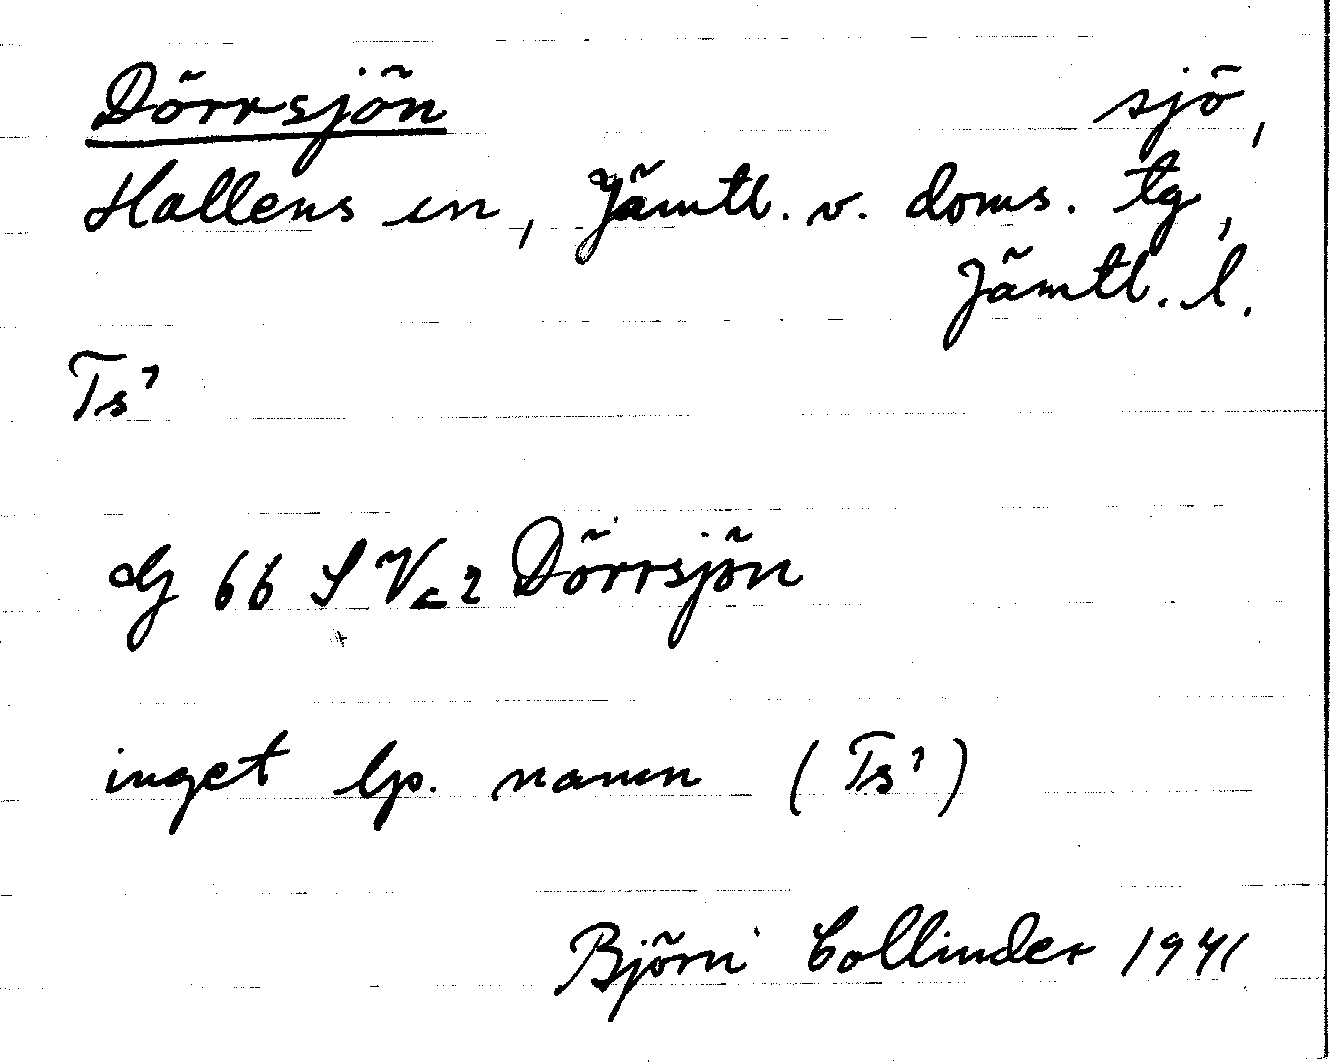 Dörrsjön sjö,
Hallens sn, Jämtl. v. doms. tg,
Jämtl. l.
Ts¹
G 66 S V c 2 Dörrsjön
inget lp. namn (Ts¹)
Björn Collinder 1941